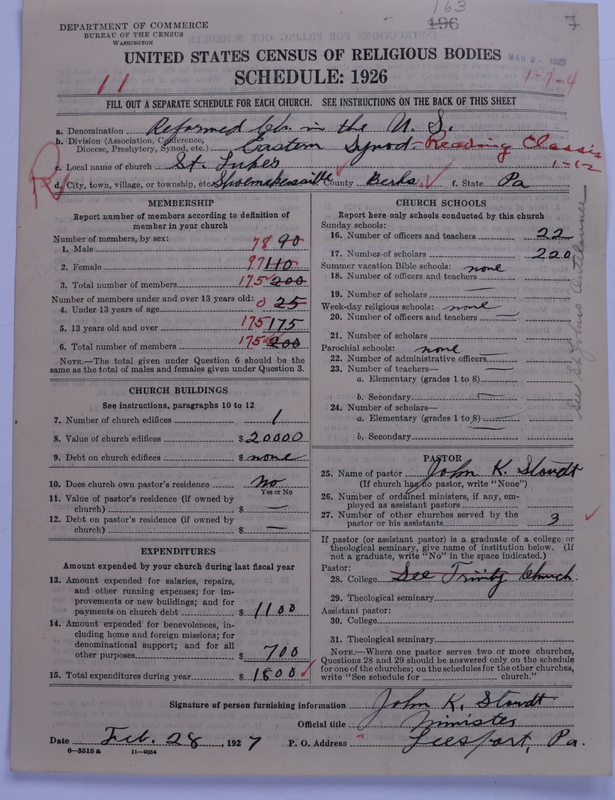 163
196
7
DEPARTMENT OF COMMERCE
BUREAU OF THE CENSUS
WASHINGTON
UNITED STATES CENSUS OF RELIGIOUS BODIES
MAR 2 - 1927
SCHEDULE: 1926
11
1-7-4
FILL OUT A SEPARATE SCHEDULE FOR EACH CHURCH. SEE INSTRUCTIONS ON THE BACK OF THIS SHEET
a. Denomination Reformed Ch. in the U. S.
b. Division (Association, Conference, Diocese, Presbytery, Synod, etc.) Eastern Synod - Reading Classis
1-1-2
R
c. Local name of church St. Lukes
d. City, town, village, or township, etc. Shoemakersville County Berks f. State Pa
MEMBERSHIP
Report number of members according to definition of
member in your church
Number of members, by sex:
1. Male 78 90
2. Female 97 110
3. Total number of members 175 200
Number of members under and over 13 years old:
4. Under 13 years of age 0 25
5. 13 years old and over 175 175
6. Total number of members 175 200
NOTE.—The total given under Question 6 should be the
same as the total of males and females given under Question 3.
CHURCH BUILDINGS
See instructions, paragraphs 10 to 12
7. Number of church edifices 1
8. Value of church edifices $20000
9. Debt on church edifices $none
10. Does church own pastor's residence no
Yes or No
11. Value of pastor's residence (if owned by
church) $ —
12. Debt on pastor's residence (if owned by
church) $ —
EXPENDITURES
Amount expended by your church during last fiscal year
13. Amount expended for salaries, repairs,
and other running expenses; for im-
provements or new buildings; and for
payments on church debt $1100
14. Amount expended for benevolences, in-
cluding home and foreign missions; for
denominational support; and for all
other purposes $700
15. Total expenditures during year $1800
CHURCH SCHOOLS
Report here only schools conducted by this church
Sunday schools:
16. Number of officers and teachers 22
17. Number of scholars 220
Summer vacation Bible schools: none
18. Number of officers and teachers
19. Number of scholars —
Week-day religious schools: none
20. Number of officers and teachers —
21. Number of scholars —
Parochial schools: none
22. Number of administrative officers
23. Number of teachers— —
a. Elementary (grades 1 to 8)
b. Secondary —
24. Number of scholars— —
a. Elementary (grades 1 to 8) —
b. Secondary —
See St. Johns
PASTOR
25. Name of pastor John K. Stoudt
(If church has no pastor, write "None")
26. Number of ordained ministers, if any, em-
ployed as assistant pastors
27. Number of other churches served by the
pastor or his assistants 3
If pastor (or assistant pastor) is a graduate of a college or
theological seminary, give name of institution below. (If
not a graduate, write "No" in the space indicated.)
Pastor:
28. College See Trinity Church
29. Theological seminary
Assistant pastor:
30. College
31. Theological seminary
NOTE.—Where one pastor serves two or more churches,
Questions 28 and 29 should be answered only on the schedule
for one of the churches; on the schedules for the other churches,
write "See schedule for church."
Signature of person furnishing information John K. Stoudt
Official title Minister
Date Feb. 28, 1927 P. O. Address Leesport, Pa.
8-5518a 11-9054